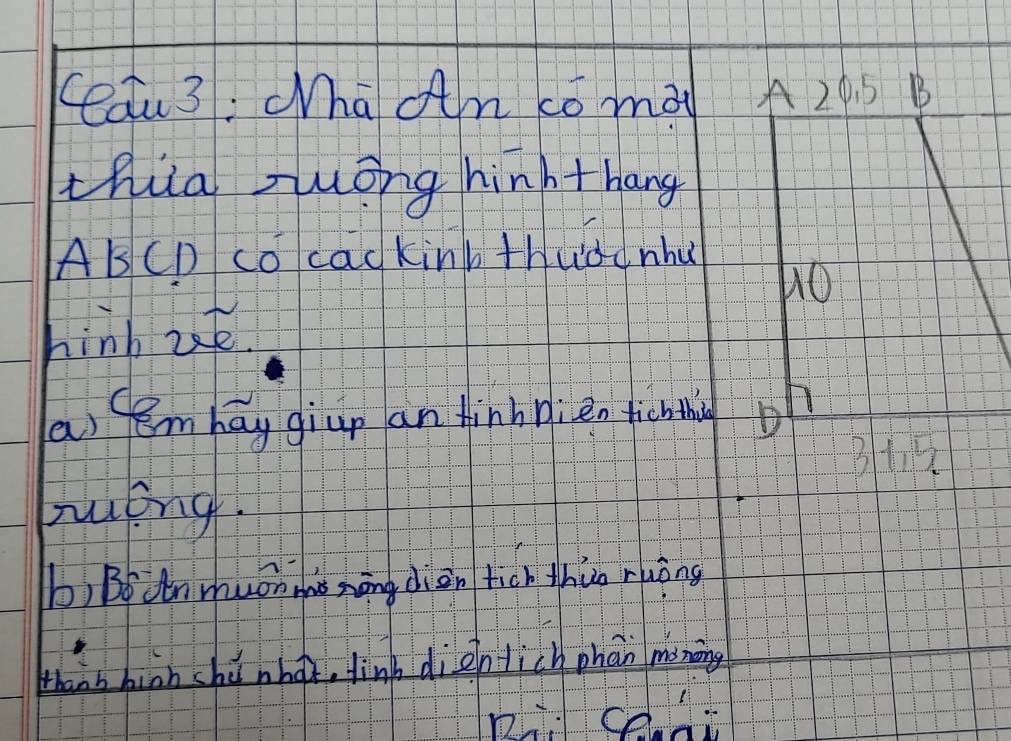 Câu 3: Nhà An có một A 20,5 B
thửa ruộng hình thang
ABCD có các kính thước như
40
hình vẽ.
a) Em hãy giúp an tính diện tích thửa D
31,5
ruộng.
b) Bố An muốn mở rộng diện tích thửa ruộng
thành hình chữ nhật. tính diện tích phần mở rộng
Bài giải